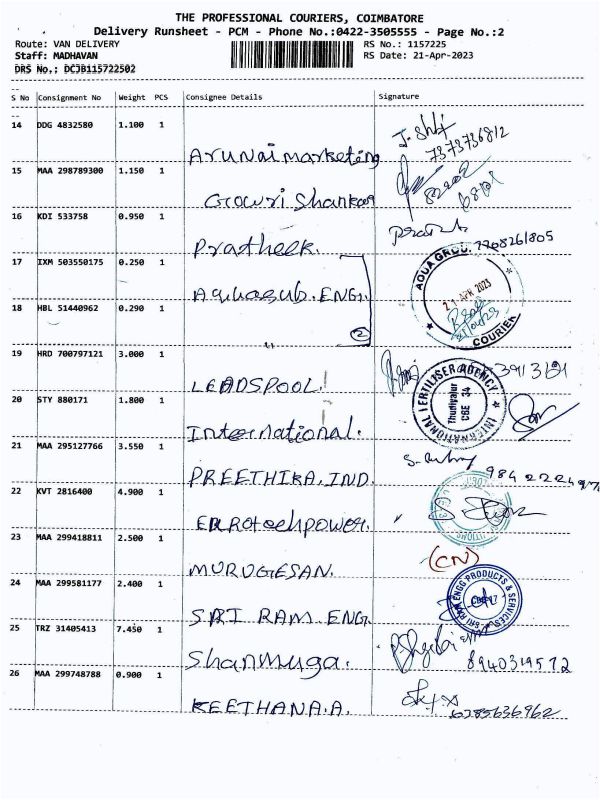 THE PROFESSIONAL COURIERS, COIMBATORE
Delivery Runsheet - PCM - Phone No.:0422-3505555 - Page No.:2
Route: VAN DELIVERY RS No.: 1157225
Staff: MADHAVAN RS Date: 21-Apr-2023
DRS No.: DCJB115722502
S No Consignment No Weight PCS Consignee Details Signature
14 DDG 4832580 1.100 1
7373736812
Arunai marketing
15 MAA 298789300 1.150 1
Gowri Shankar
16 KDI 533758 0.950 1
Pratheek. 7708261805
17 IXM 503550175 0.250 1
AQUA GROUP
Aquasub. ENGI. 21 APR 2023
18 HBL 51440962 0.290 1
2 COURIER
19 HRD 700797121 3.000 1
LEADSPOOL.
INTERNATIONAL FERTILISER AGENCY
Thudiyalur
CBE 34
20 STY 880171 1.800 1
International.
21 MAA 295127766 3.550 1
PREETHIKA. IND.
22 KVT 2816400 4.900 1
Eurotechpower.
23 MAA 299418811 2.500 1
(CN)
MURUGESAN.
24 MAA 299581177 2.400 1
SRI RAM ENGG PRODUCTS & SERVICES
SRI RAM. ENG.
25 TRZ 31405413 7.450 1
Shanmuga. 8940319572
26 MAA 299748788 0.900 1
KEETHANA.A. 6385636962